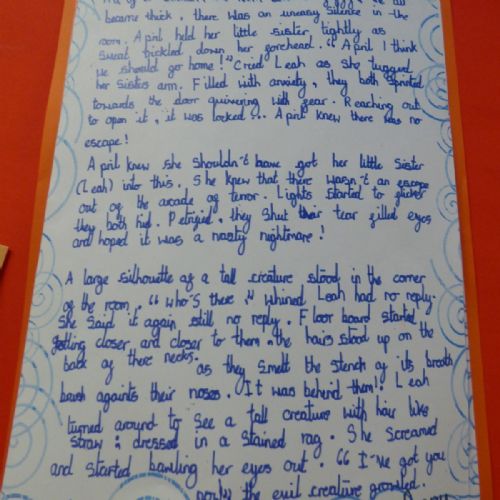 became thick, there was an uneasy silence in the
room. April held her little sister tightly as
sweat trickled down her forehead. "April I think
we should go home!" Cried Leah as she tugged
her sisters arm. Filled with anxiety, they both sprinted
towards the door quivering with fear. Reaching out
to open it, it was locked... April knew there was no
escape!
April knew she shouldn't have got her little sister
(Leah) into this. She knew that there wasn't an escape
out of the arcade of terror. Lights started to flicker
they both hid. Petrified, they shut their tear filled eyes
and hoped it was a nasty nightmare!
A large silhouette of a tall creature stood in the corner
of the room. "Who's there" whined Leah had no reply.
She said it again still no reply. Floor board started
getting closer and closer to them the hairs stood up on the
back of there necks.
as they smelt the stench of its breath
bash againts their noses. It was behind them! Leah
turned around to see a tall creature with hair like
straw : dressed in a stained rag. She screamed
and started bawling her eyes out. "I've got you
the evil creature growled.